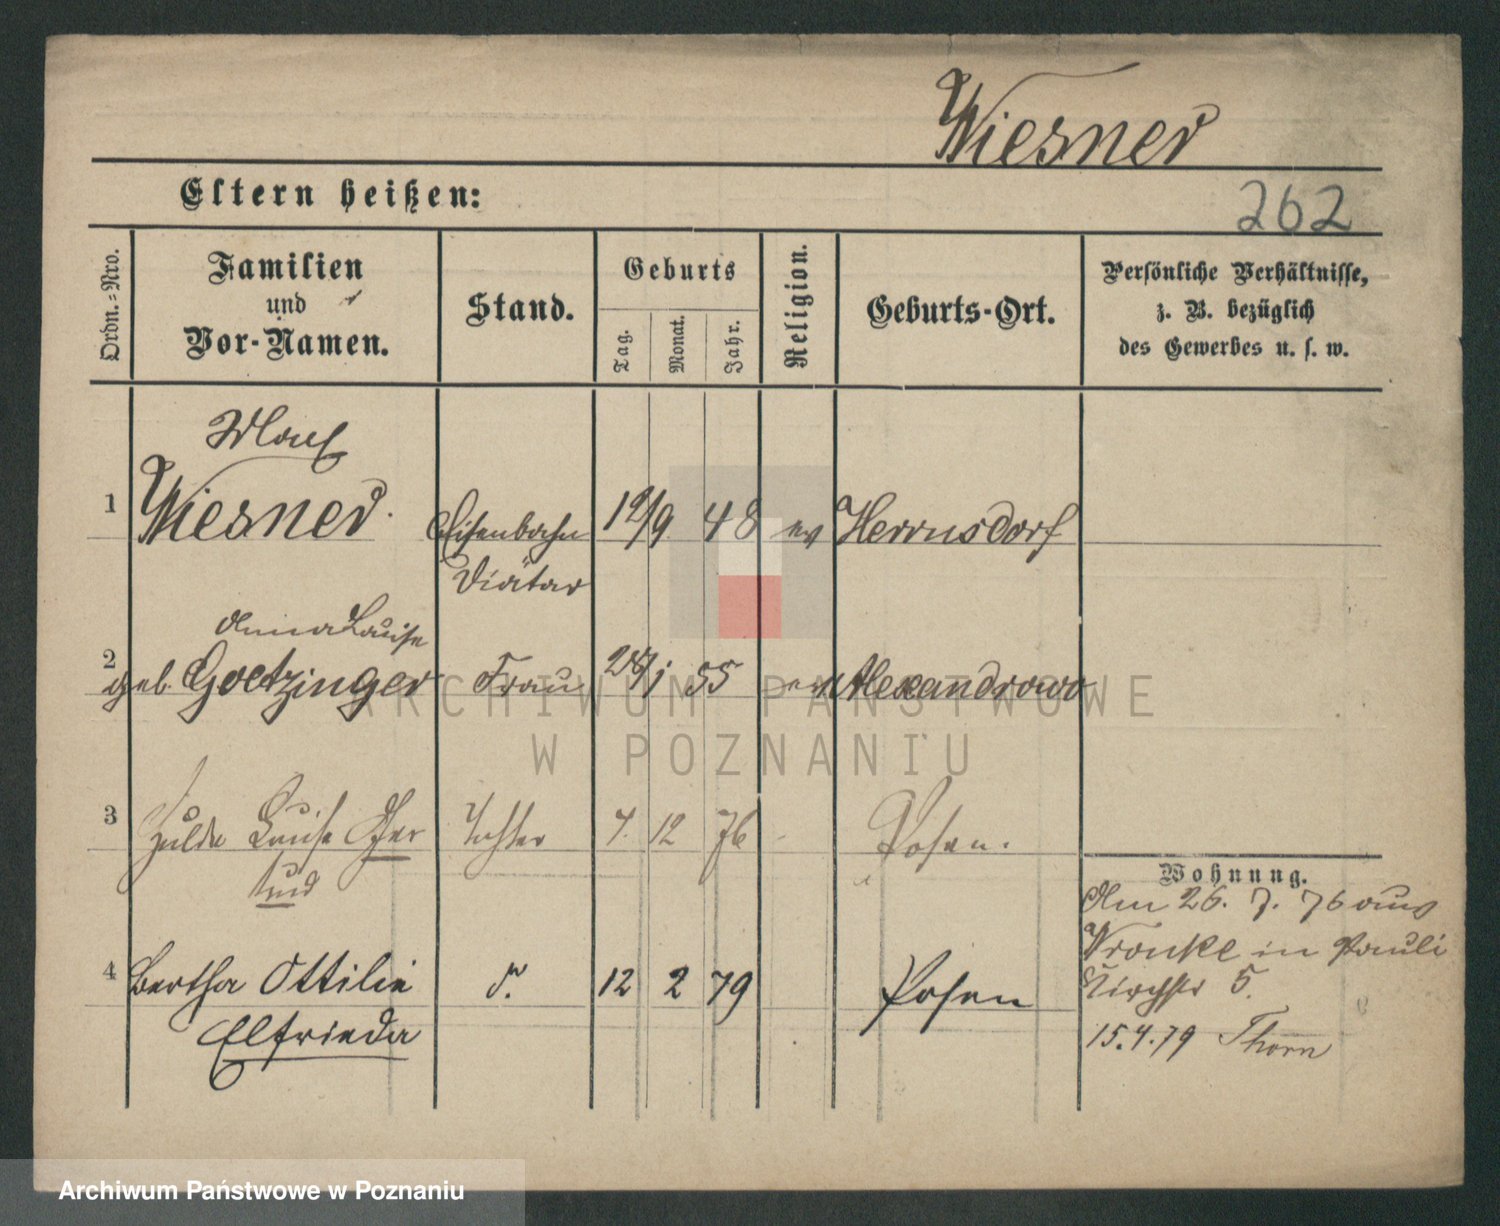 Wiesner
Eltern heißen:
262
Ordn.=Nro.
Familien
und
Vor-Namen.
Stand.
Geburts
Tag.
Monat.
Jahr.
Religion.
Geburts-Ort.
Persönliche Verhältnisse,
z. B. bezüglich
des Gewerbes u. s. w.
Max
1 Wiesner. Eisenbahn 12/9 48 ev Herrnsdorf
Diätar
Anna Louise
2 geb. Goetzinger Frau 28/1 55 ev Alexandrowo
ARCHIWUM PAŃSTWOWE
W POZNANIU
3 Hulda Louise Tochter 7. 12 76 Posen.
und
Wohnung.
Am 26. 7. 76 aus
Wronke in Pauli
Kirchstr 5.
4 Bertha Ottilie d. 12 2 79 Posen
Elfrieda
15.4.79 Thorn
Archiwum Państwowe w Poznaniu